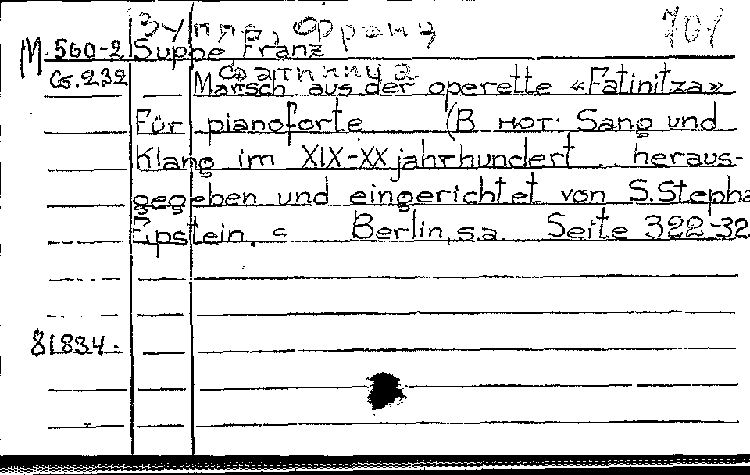 Зуппе, Франц 701
М. 560-2 Suppe Franz
Фатиница
Сб. 232 Marsch aus der operette «Fatinitza»
Für pianoforte (В нот. Sang und
Klang im XIX-XX jahrhundert. heraus-
gegeben und eingerichtet von S. Stepha
Epstein. c Berlin, s.a. Seite 322-32
81834.